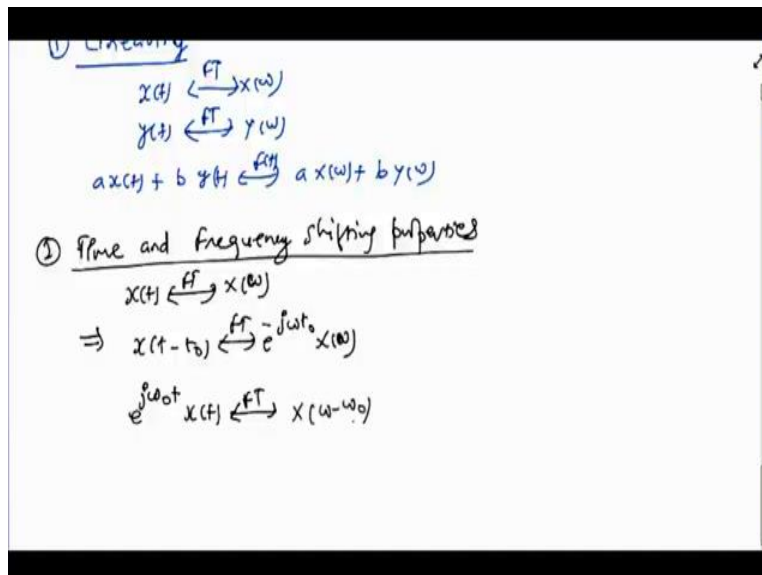 ① Linearity
x(t) <--FT--> X(ω)
y(t) <--FT--> Y(ω)
ax(t) + b y(t) <--> a X(ω) + b Y(ω)
② Time and Frequency Shifting properties
x(t) <--FT--> X(ω)
⇒ x(t-t₀) <--FT--> e^{-jωt₀} X(ω)
e^{jω₀t} x(t) <--FT--> X(ω-ω₀)